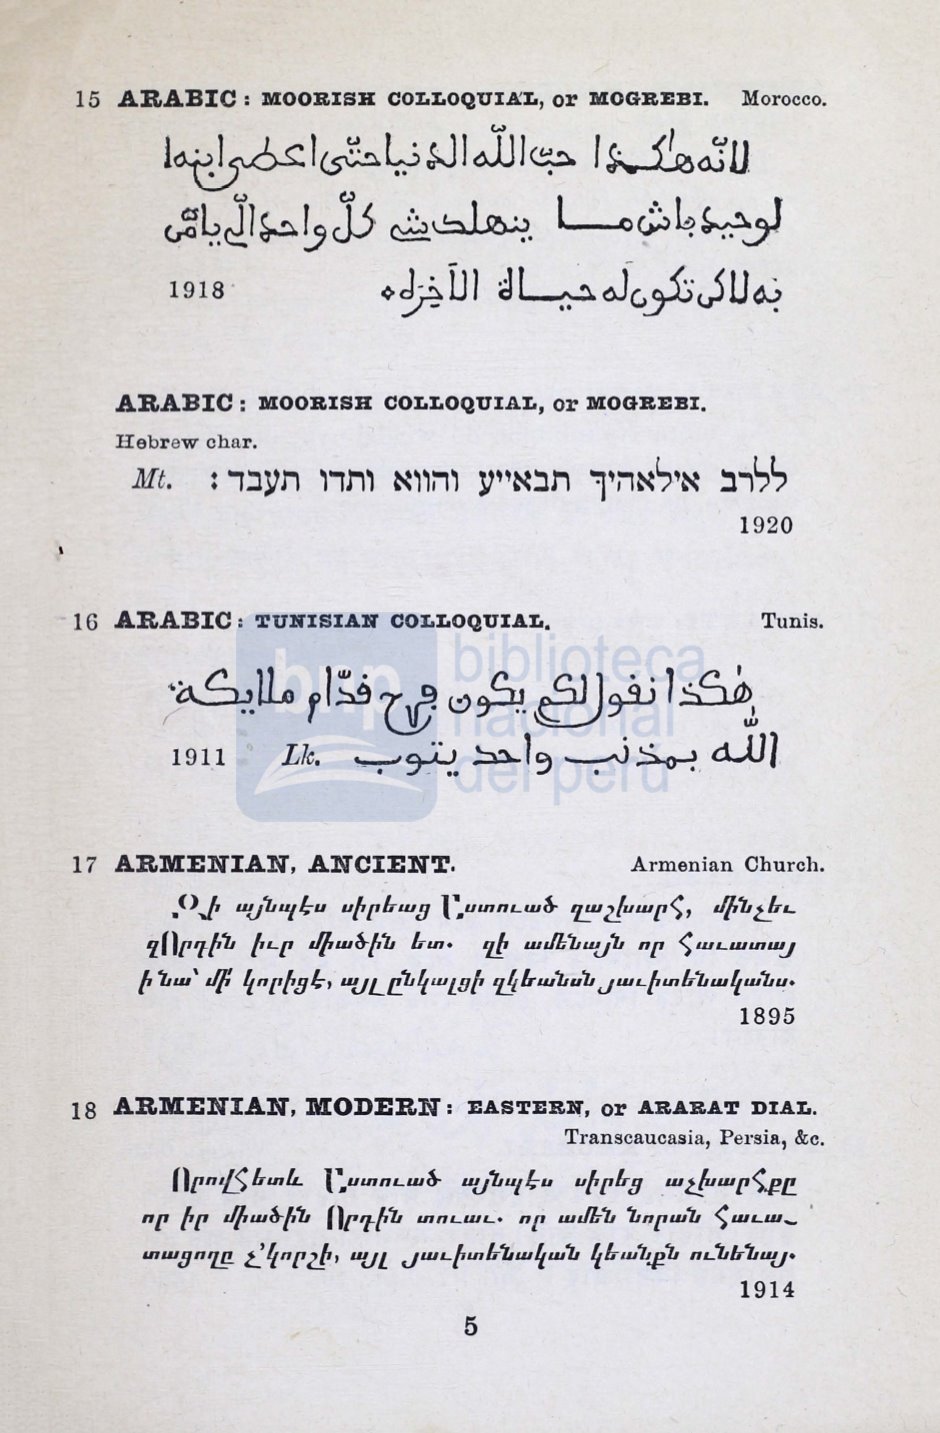 15 ARABIC: MOORISH COLLOQUIAL, or MOGREBI. Morocco.
لانّه هٰكـذا حبّ اللّه الدنيا حتّى اعطى ابنه ا
لوحيد باش مـــا ينهلك شي كلّ واحد الّي يامّن
به لاكن تكون له حيـــاة الآخِرة
1918
ARABIC: MOORISH COLLOQUIAL, or MOGREBI.
Hebrew char.
ללרב אילאהיך תבאייע והווא ותדו תעבד : Mt.
1920
16 ARABIC: TUNISIAN COLLOQUIAL. Tunis.
هٰكذا نقول لكم يكون فرح قدّام ملايكة
اللّٰه بمذنب واحد يتوب Lk. 1911
bnp biblioteca nacional del perú
17 ARMENIAN, ANCIENT. Armenian Church.
Զի այնպէս սիրեաց Աստուած զաշխարհ, մինչեւ
զՈրդին իւր միածին ետ. զի ամենայն որ հաւատայ
ի նա՝ մի՛ կորիցէ, այլ ընկալցի զկեանսն յաւիտենականս.
1895
18 ARMENIAN, MODERN: EASTERN, or ARARAT DIAL.
Transcaucasia, Persia, &c.
Որովհետև Աստուած այնպէս սիրեց աշխարհքը
որ իր միածին Որդին տուաւ. որ ամեն նորան հաւա-
տացողը չ'կորշի, այլ յաւիտենական կեանքն ունենայ.
1914
5